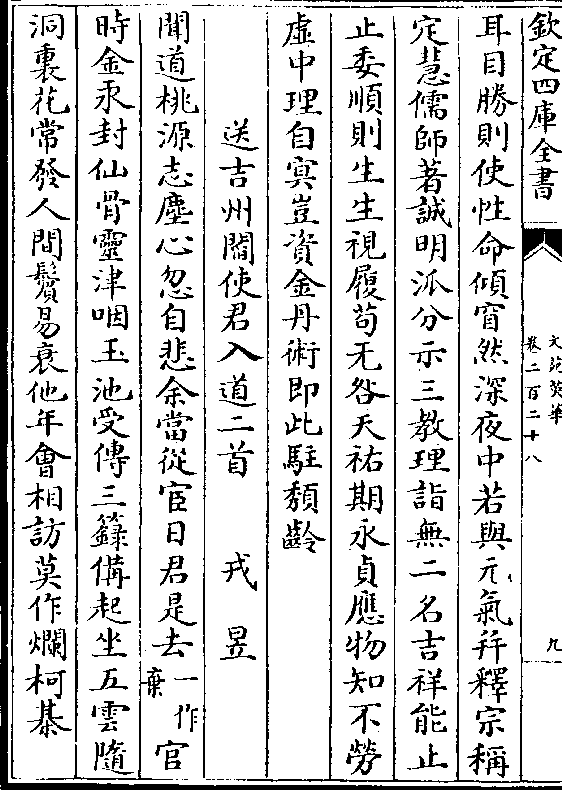 欽定四庫全書
文苑英華
卷二百二十八
九
耳目勝則使性命傾窅然深夜中若與元氣并釋宗稱
定慧儒師著誠明派分示三教理詣無二名吉祥能止
止委順則生生視履苟无咎天祐期永貞應物知不勞
虛中理自冥豈資金丹術即此駐頹齡
送吉州閻使君入道二首 戎昱
聞道桃源志塵心忽自悲余當從宦日君是去一作棄官
時金汞封仙骨靈津咽玉池受傳三籙備起坐五雲隨
洞裏花常發人間鬢易衰他年會相訪莫作爛柯棊